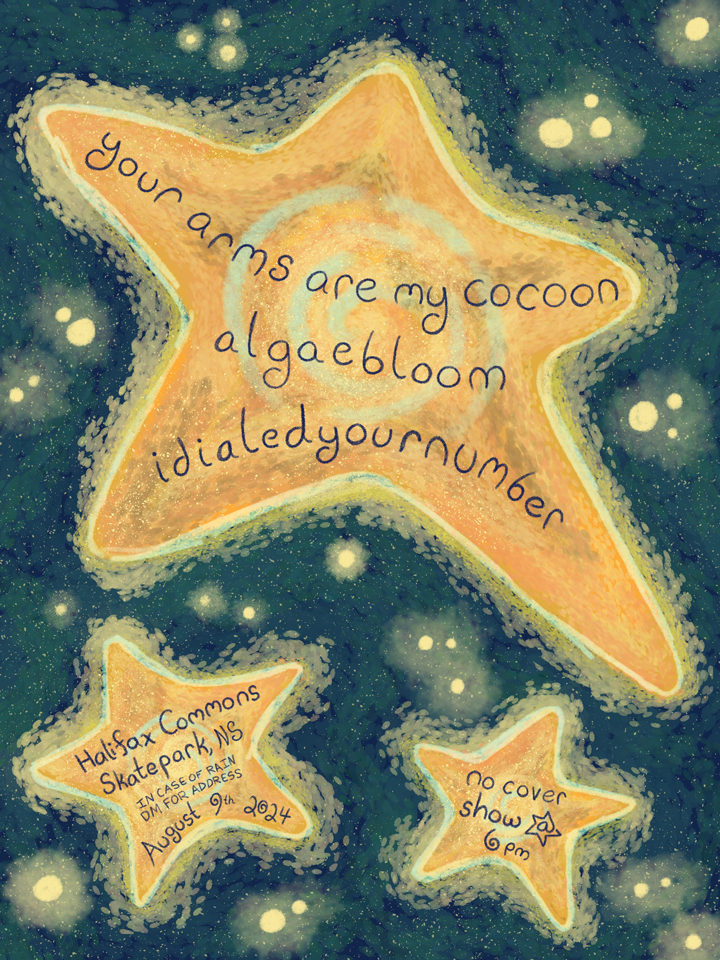 your arms are my cocoon
algaebloom
idialedyournumber
Halifax Commons
Skatepark, NS
IN CASE OF RAIN
DM FOR ADDRESS
August 9th 2024
no cover
show @
6 pm